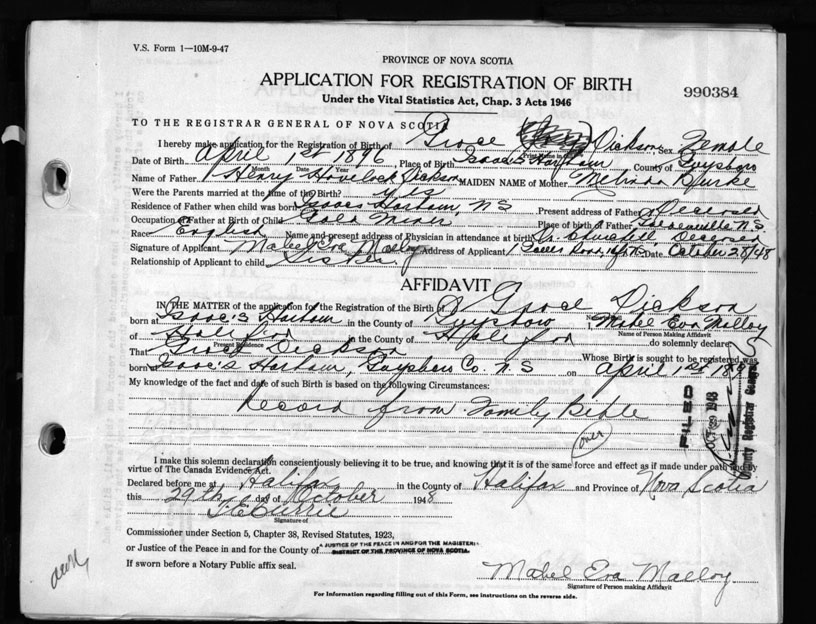 V.S. Form 1—10M-9-47
PROVINCE OF NOVA SCOTIA
APPLICATION FOR REGISTRATION OF BIRTH
990384
Under the Vital Statistics Act, Chap. 3 Acts 1946
TO THE REGISTRAR GENERAL OF NOVA SCOTIA
I hereby make application for the Registration of Birth of Grace Dickson Sex Female
Date of Birth April 1st 1896 Place of Birth Isaac's Harbour County of Guysboro
Month Date Year
Name of Father Henry Havelock Dickson MAIDEN NAME of Mother Melinda Burke
Were the Parents married at the time of the Birth? yes
Residence of Father when child was born Isaacs Harbour, N.S Present address of Father Deceased
Occupation of Father at Birth of Child Gold Miner Place of birth of Father N.S.
Race English Name and present address of Physician in attendance at birth Dr. Deceased
Signature of Applicant Mabel Eva Malloy Address of Applicant Road, Date October 28/48
Relationship of Applicant to child Sister
AFFIDAVIT
IN THE MATTER of the application for the Registration of the Birth of Grace Dickson
born at Isaac's Harbour in the County of Guysboro, Mabel Eva Malloy
Name of Person Making Affidavit
of Halifax in the County of Halifax do solemnly declare:
Present Residence
That Grace Dickson Whose Birth is sought to be registered was
born Isaac's Harbour, Guysboro Co. N.S on April 1st 1896
My knowledge of the fact and date of such Birth is based on the following Circumstances:
Record from Family Bible
(over)
FILED
OCT 1948
County Registrar General
I make this solemn declaration conscientiously believing it to be true, and knowing that it is of the same force and effect as if made under oath and by
virtue of The Canada Evidence Act.
Declared before me at Halifax in the County of Halifax and Province of Nova Scotia
this 29th day of October 1948
Currie
Signature of
Commissioner under Section 5, Chapter 38, Revised Statutes, 1923,
or Justice of the Peace in and for the County of A JUSTICE OF THE PEACE IN AND FOR THE MAGISTERIAL
DISTRICT OF THE PROVINCE OF NOVA SCOTIA.
If sworn before a Notary Public affix seal.
Mabel Eva Malloy
Signature of Person making Affidavit
For Information regarding filling out of this Form, see instructions on the reverse side.